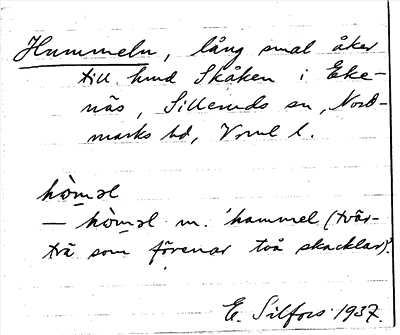 Hummeln, lång smal åker
till hmd Skåken i Eke-
näs, Silleruds sn, Nord-
marks hd, Vrml l.
hòməl
— hòməl m. 'hammel (tvär-
trä som förenar två skacklar)'.
E. Silfors 1937.